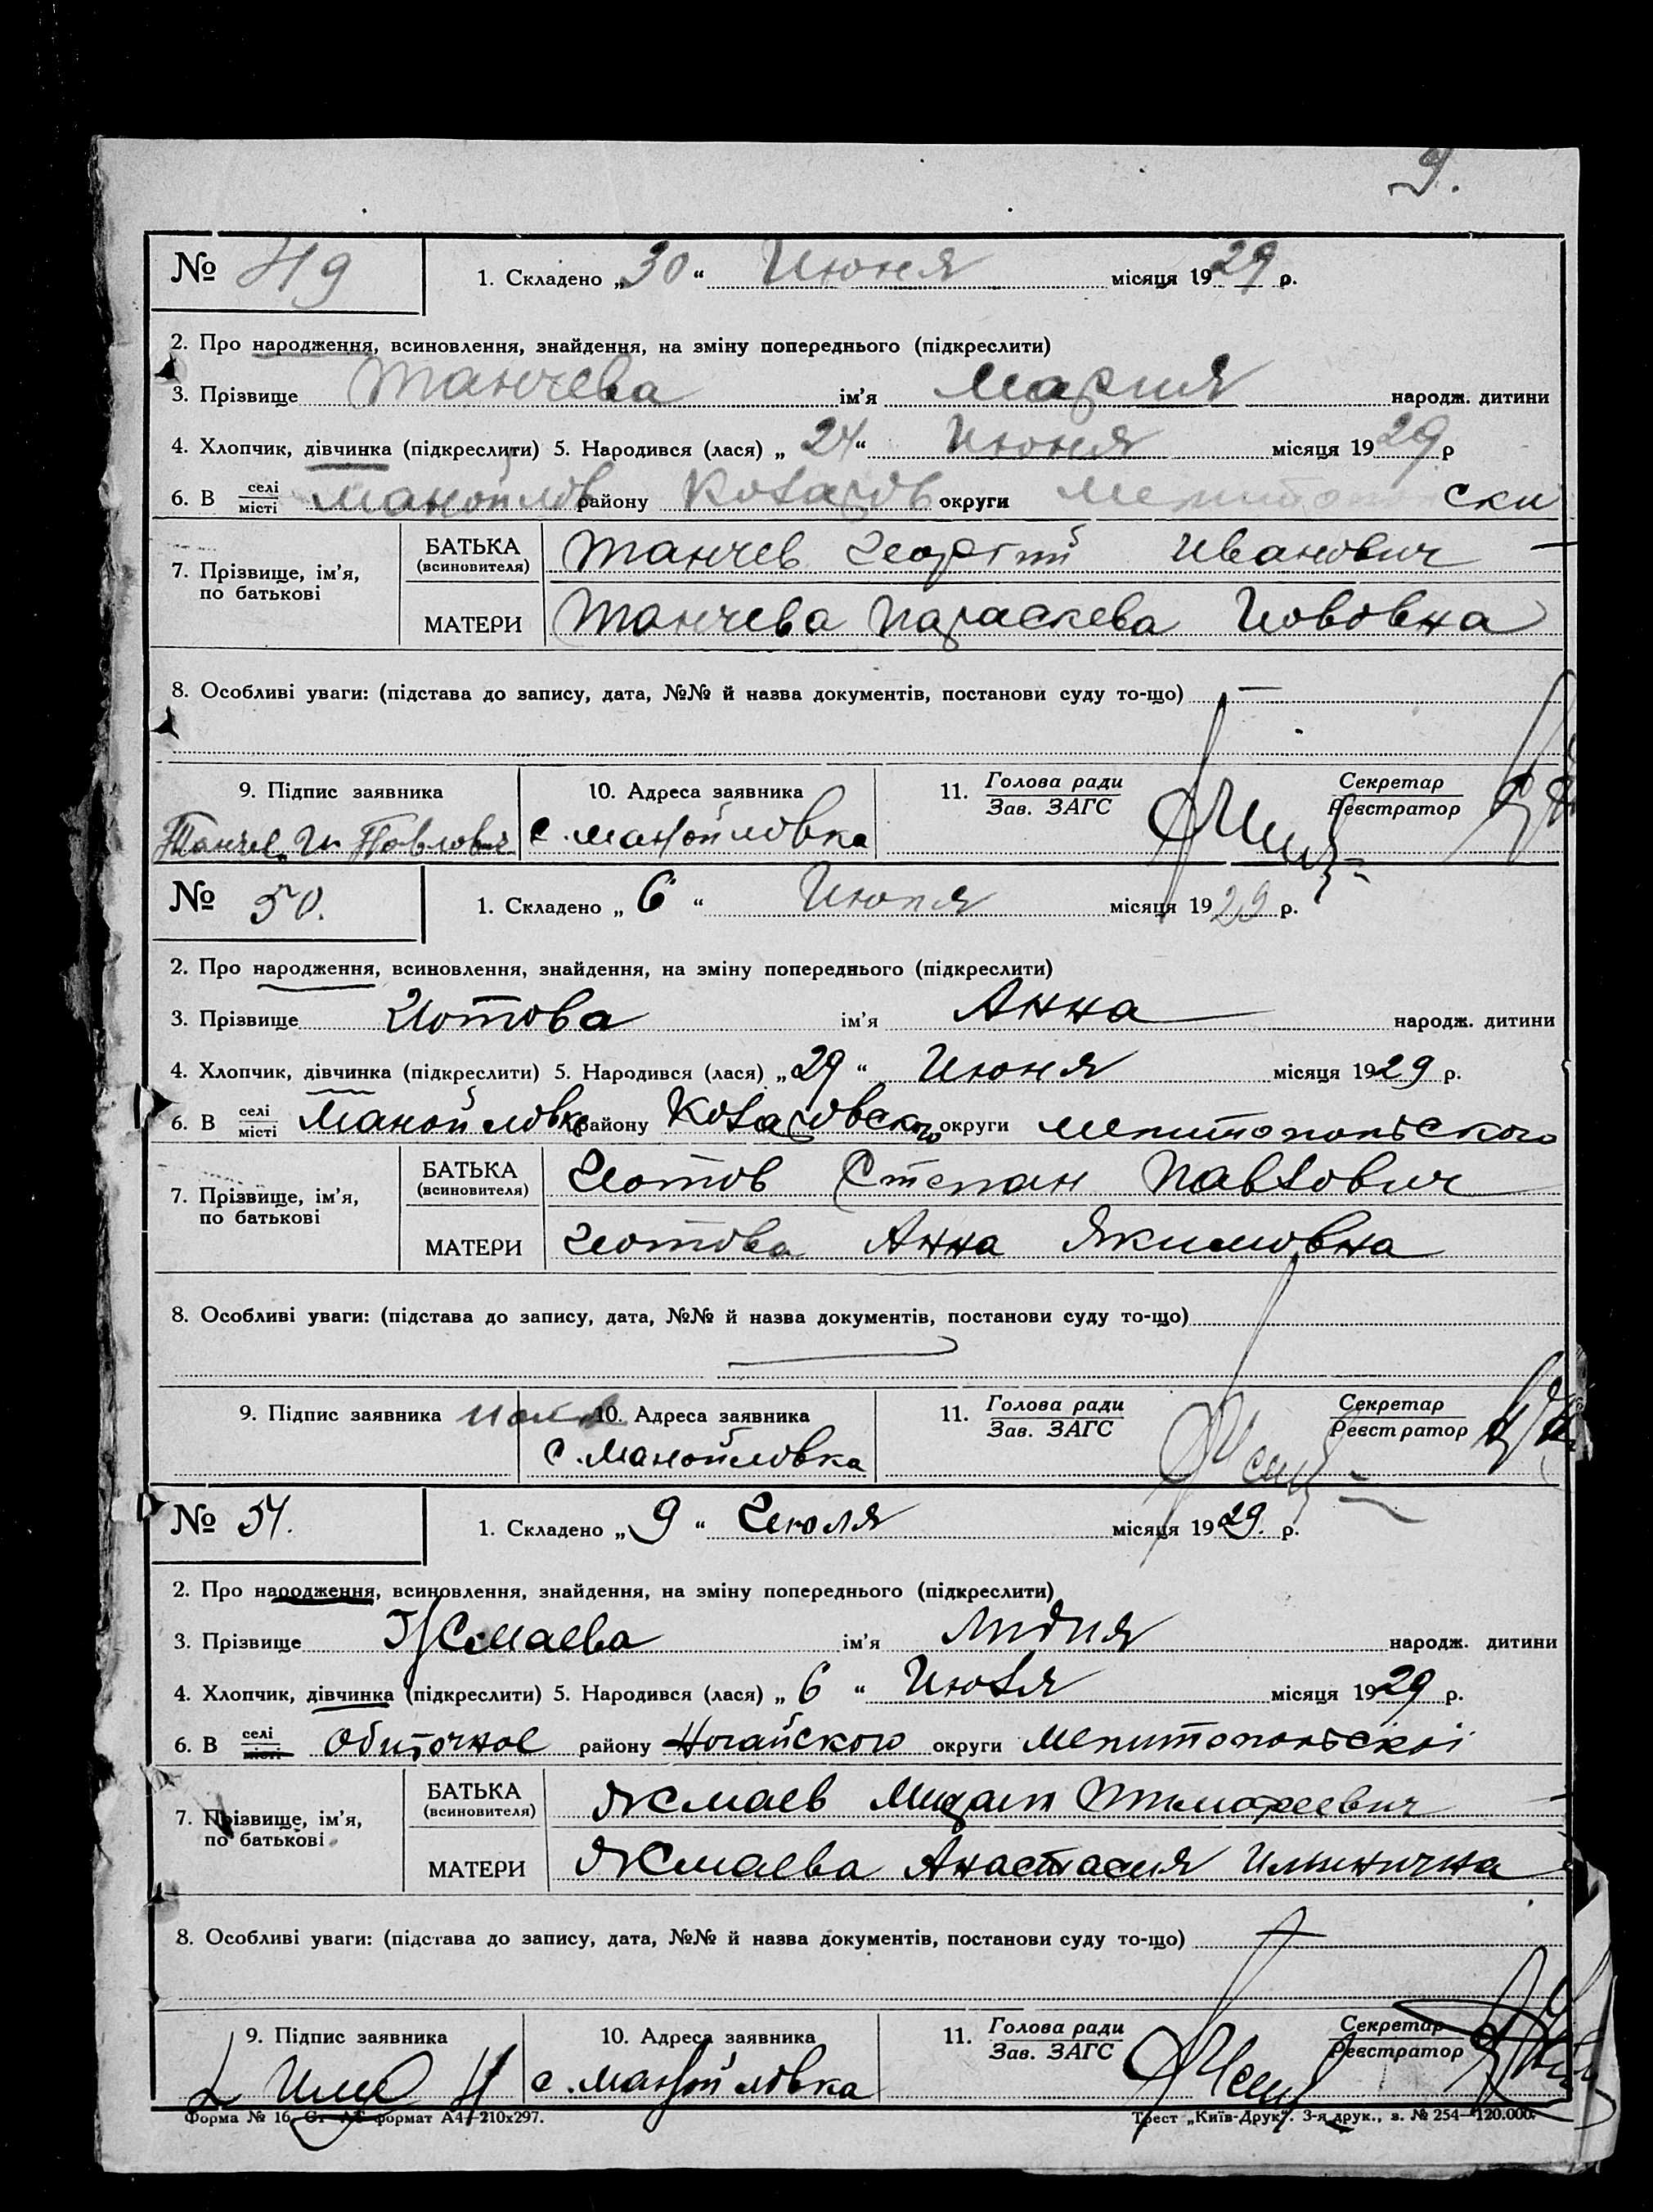 9.
№ 49 1. Складено „30“ Июня місяця 1929 р.
2. Про народження, всиновлення, знайдення, на зміну попереднього (підкреслити)
3. Прізвище Танчева ім'я Мария народж. дитини
4. Хлопчик, дівчинка (підкреслити) 5. Народився (лася) „24“ Июня місяця 1929 р
6. В селі місті Манойлов району Козагов округи Мелитополь ски
7. Прізвище, ім'я, по батькові БАТЬКА (всиновителя) Танчев Георгий Иванович
МАТЕРИ Танчева Параскева Иововна
8. Особливі уваги: (підстава до запису, дата, №№ й назва документів, постанови суду то-що) —
9. Підпис заявника 10. Адреса заявника 11. Голова ради Зав. ЗАГС Секретар Реєстратор
Танчев Ив Павлович с. Манойловка
№ 50. 1. Складено „6“ Июля місяця 1929 р.
2. Про народження, всиновлення, знайдення, на зміну попереднього (підкреслити)
3. Прізвище Иотова ім'я Анна народж. дитини
4. Хлопчик, дівчинка (підкреслити) 5. Народився (лася) „29“ Июня місяця 1929 р.
6. В селі місті Манойловке району округи Мелитопольского
7. Прізвище, ім'я, по батькові БАТЬКА (всиновителя) Иотов Степан Павлович
МАТЕРИ Иотова Анна Якимовна
8. Особливі уваги: (підстава до запису, дата, №№ й назва документів, постанови суду то-що)
9. Підпис заявника 10. Адреса заявника 11. Голова ради Зав. ЗАГС Секретар Реєстратор
с. Манойловка
№ 51. 1. Складено „9“ Июля місяця 1929. р.
2. Про народження, всиновлення, знайдення, на зміну попереднього (підкреслити)
3. Прізвище ім'я Лидия народж. дитини
4. Хлопчик, дівчинка (підкреслити) 5. Народився (лася) „6“ Июля місяця 1929 р.
6. В селі місті Обиточное району Ногайского округи Мелитопольскої
7. Прізвище, ім'я, по батькові БАТЬКА (всиновителя) Тимофеевич
МАТЕРИ Анастасия Ильинична
8. Особливі уваги: (підстава до запису, дата, №№ й назва документів, постанови суду то-що)
9. Підпис заявника 10. Адреса заявника 11. Голова ради Зав. ЗАГС Секретар Реєстратор
с. Манойловка
Форма № 16. формат А4—210х297. Трест „Київ-Друк“. 3-я друк., з. № 254—120.000.